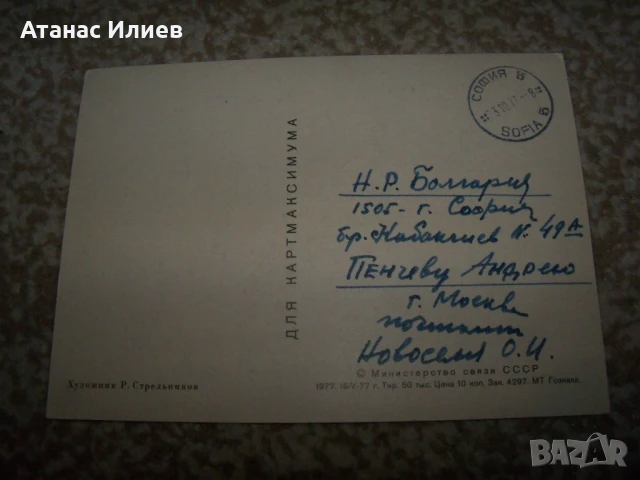 Атанас Илиев
СОФИЯ 5
SOFIA 5
ДЛЯ КАРТМАКСИМУМА
Н.Р. Болгария
1505 - г. София
бр. Кабакчиев N. 49А
Пенчеву Андрею
г. Москва
почтамт
О.И.
© Министерство связи СССР
Художник Р. Стрельников
1977. г. Тир. 50 тыс. Цена 10 коп. Зак. 4297. МТ Гознака.
BAZAR